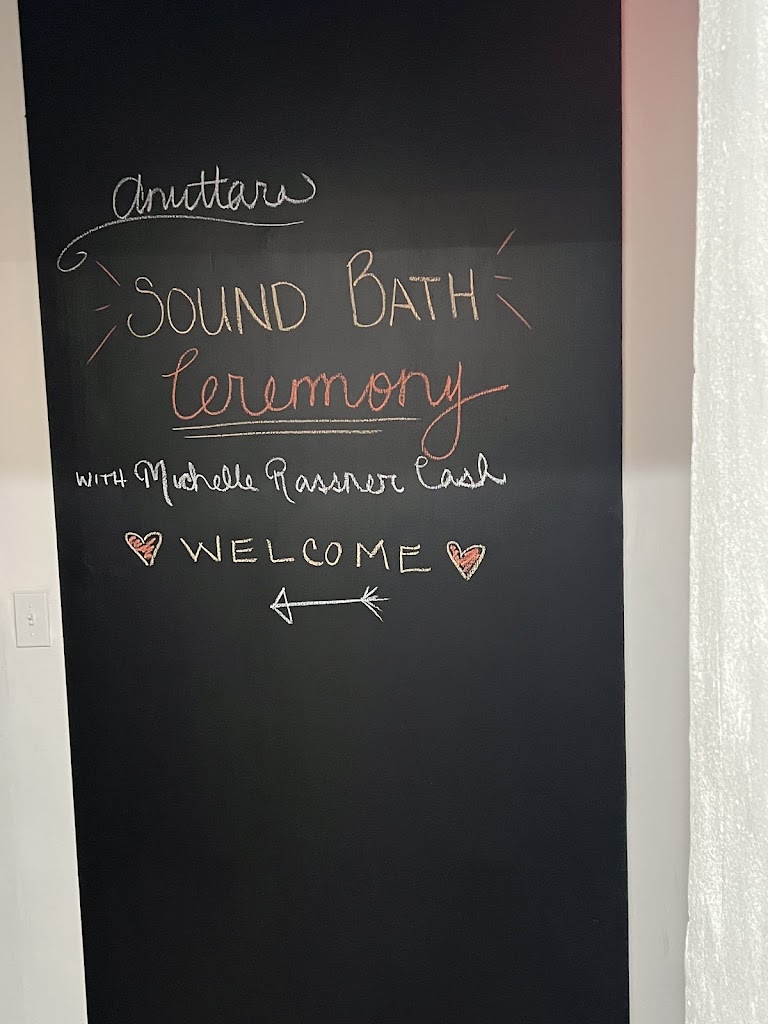 Anuttara
SOUND BATH
Ceremony
WITH Michelle Rassner Cash
WELCOME